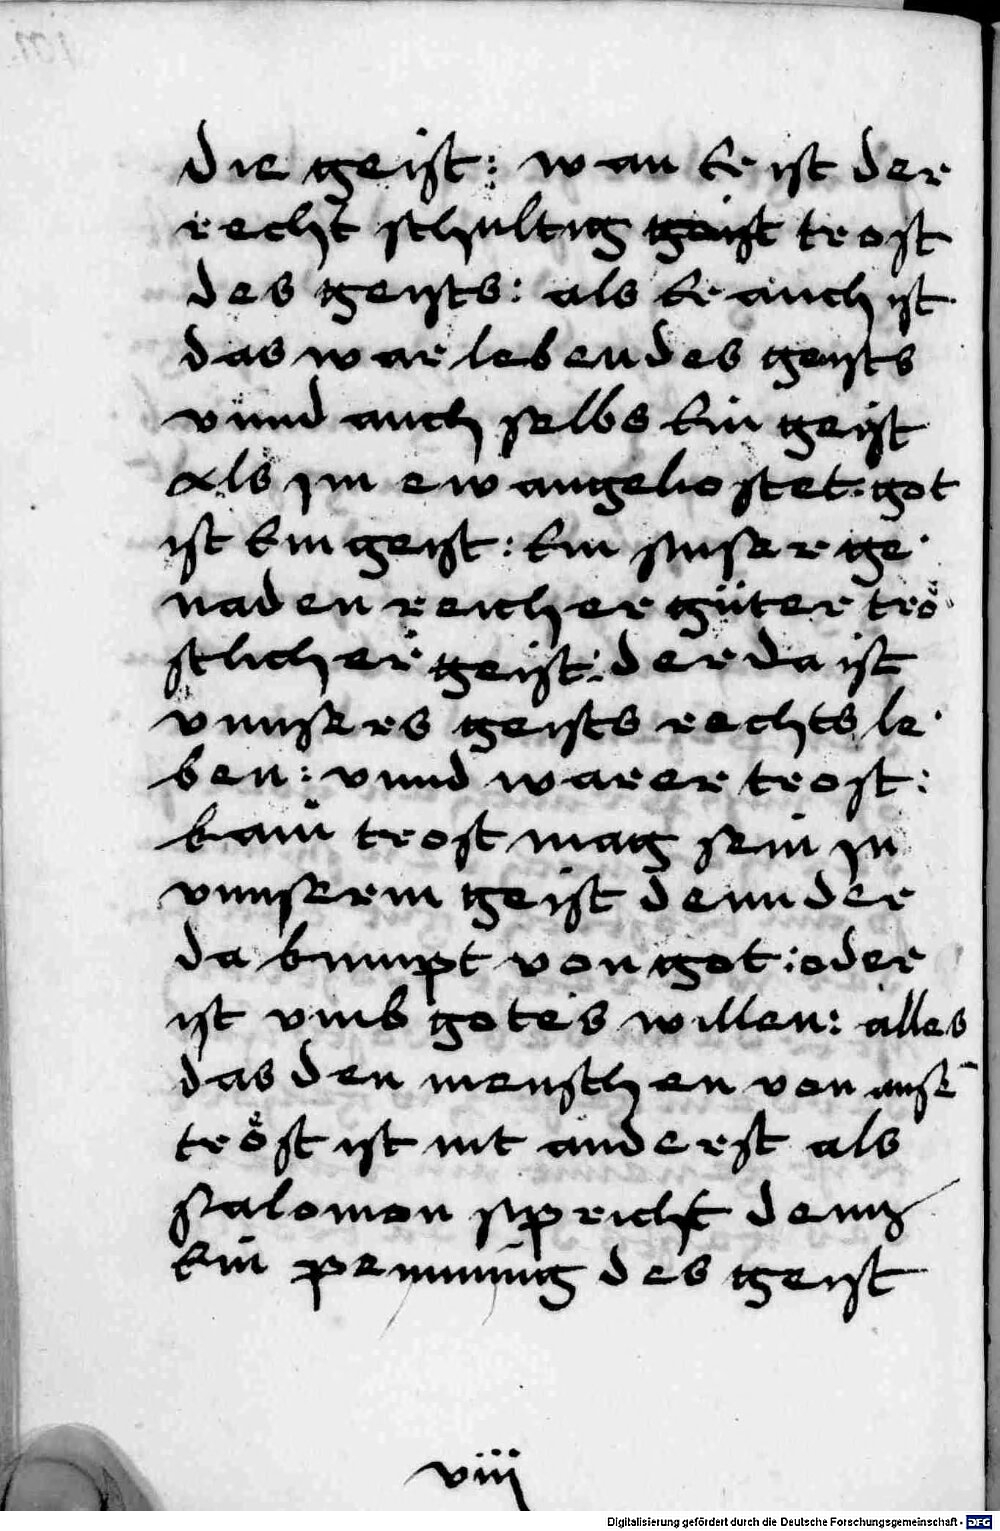 die geist: wan Er ist der
recht schultig geist trost
des geists: als Er auch ist
das war leben des geists
vnnd auch selbs Ein geist
Als jm ewangelio stet: got
ist Ein geist: Ein suser ge
naden reicher gůter trö
stlicher geist: der da ist
vnnsers geists rechts le
ben: vnnd warer trost:
kain trost mag sein jn
vnnserm geist denn der
da kumpt von got: oder
ist vmb gotes willen: alles
das den menschen von ausē
tröst ist nit anderst als
Salomon spricht denn
Ein peinnung des geist
viij
Digitalisierung gefördert durch die Deutsche Forschungsgemeinschaft - DFG